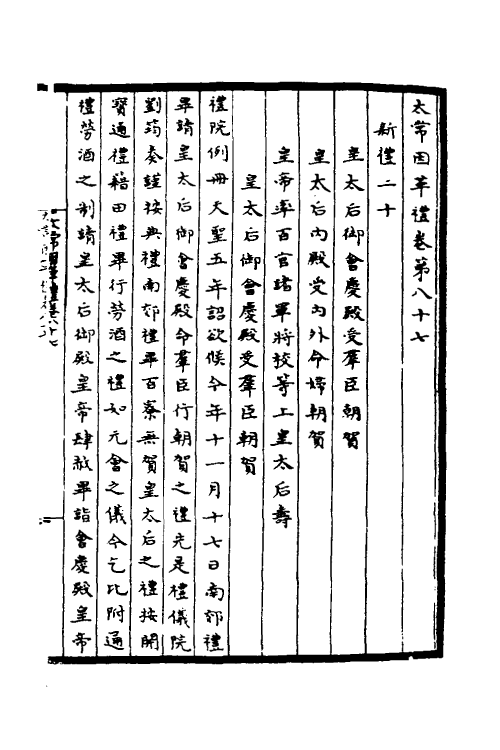 太常因革禮卷第八十七
新禮二十
皇太后御會慶殿受羣臣朝賀
皇太后內殿受內外命婦朝賀
皇帝率百官諸軍將校等上皇太后壽
皇太后御會慶殿受羣臣朝賀
禮院例冊天聖五年詔欲候今年十一月十七日南郊禮
畢請皇太后御會慶殿命羣臣行朝賀之禮先是禮儀院
劉筠奏謹按典禮南郊禮畢百寮無賀皇太后之禮按開
寶通禮籍田禮畢行勞酒之禮如元會之儀今乞比附通
禮勞酒之制請皇太后御殿皇帝肆赦畢詣會慶殿皇帝
太常因革禮卷八十七